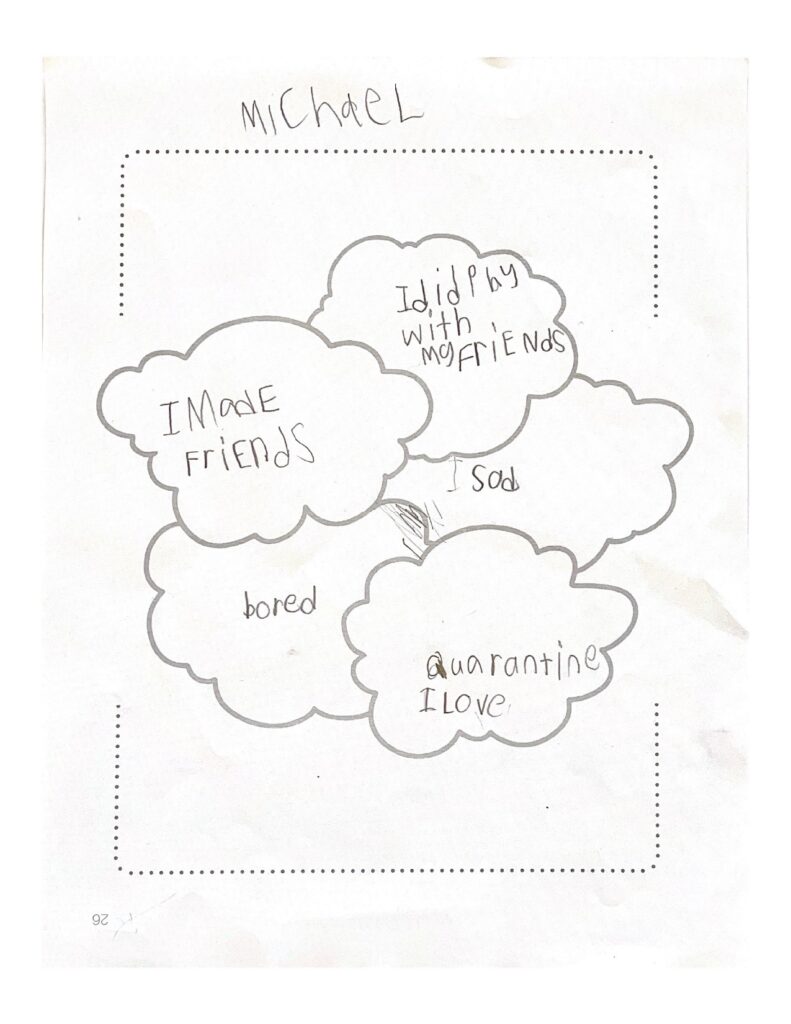 MiChaeL
I did Play
with
my FriENdS
I MadE
FriENdS
I Sad
bored
quarantine
I Love
26